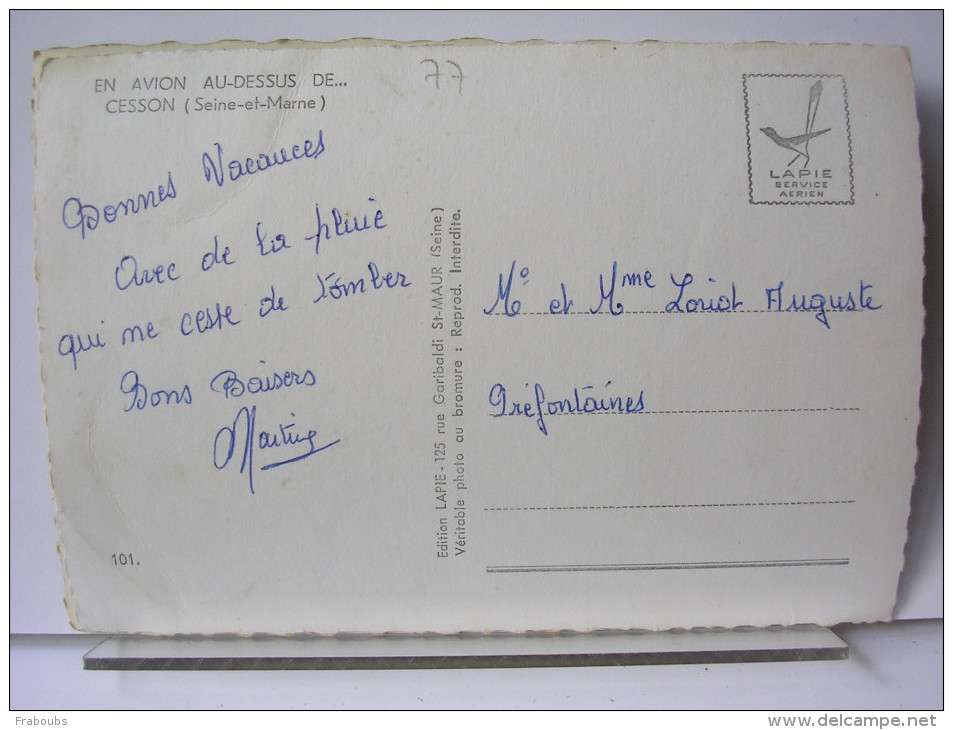 EN AVION AU-DESSUS DE...
CESSON (Seine-et-Marne)
77
LAPIE
SERVICE
AERIEN
Bonnes Vacances
Avec de la pluie
qui ne cesse de tomber
Bons Baisers
Martine
101.
Edition LAPIE - 125 rue Garibaldi St-MAUR (Seine)
Véritable photo au bromure : Reprod. Interdite.
Mr et Mme Loriot Auguste
Préfontaines
Fraboubs
www.delcampe.net